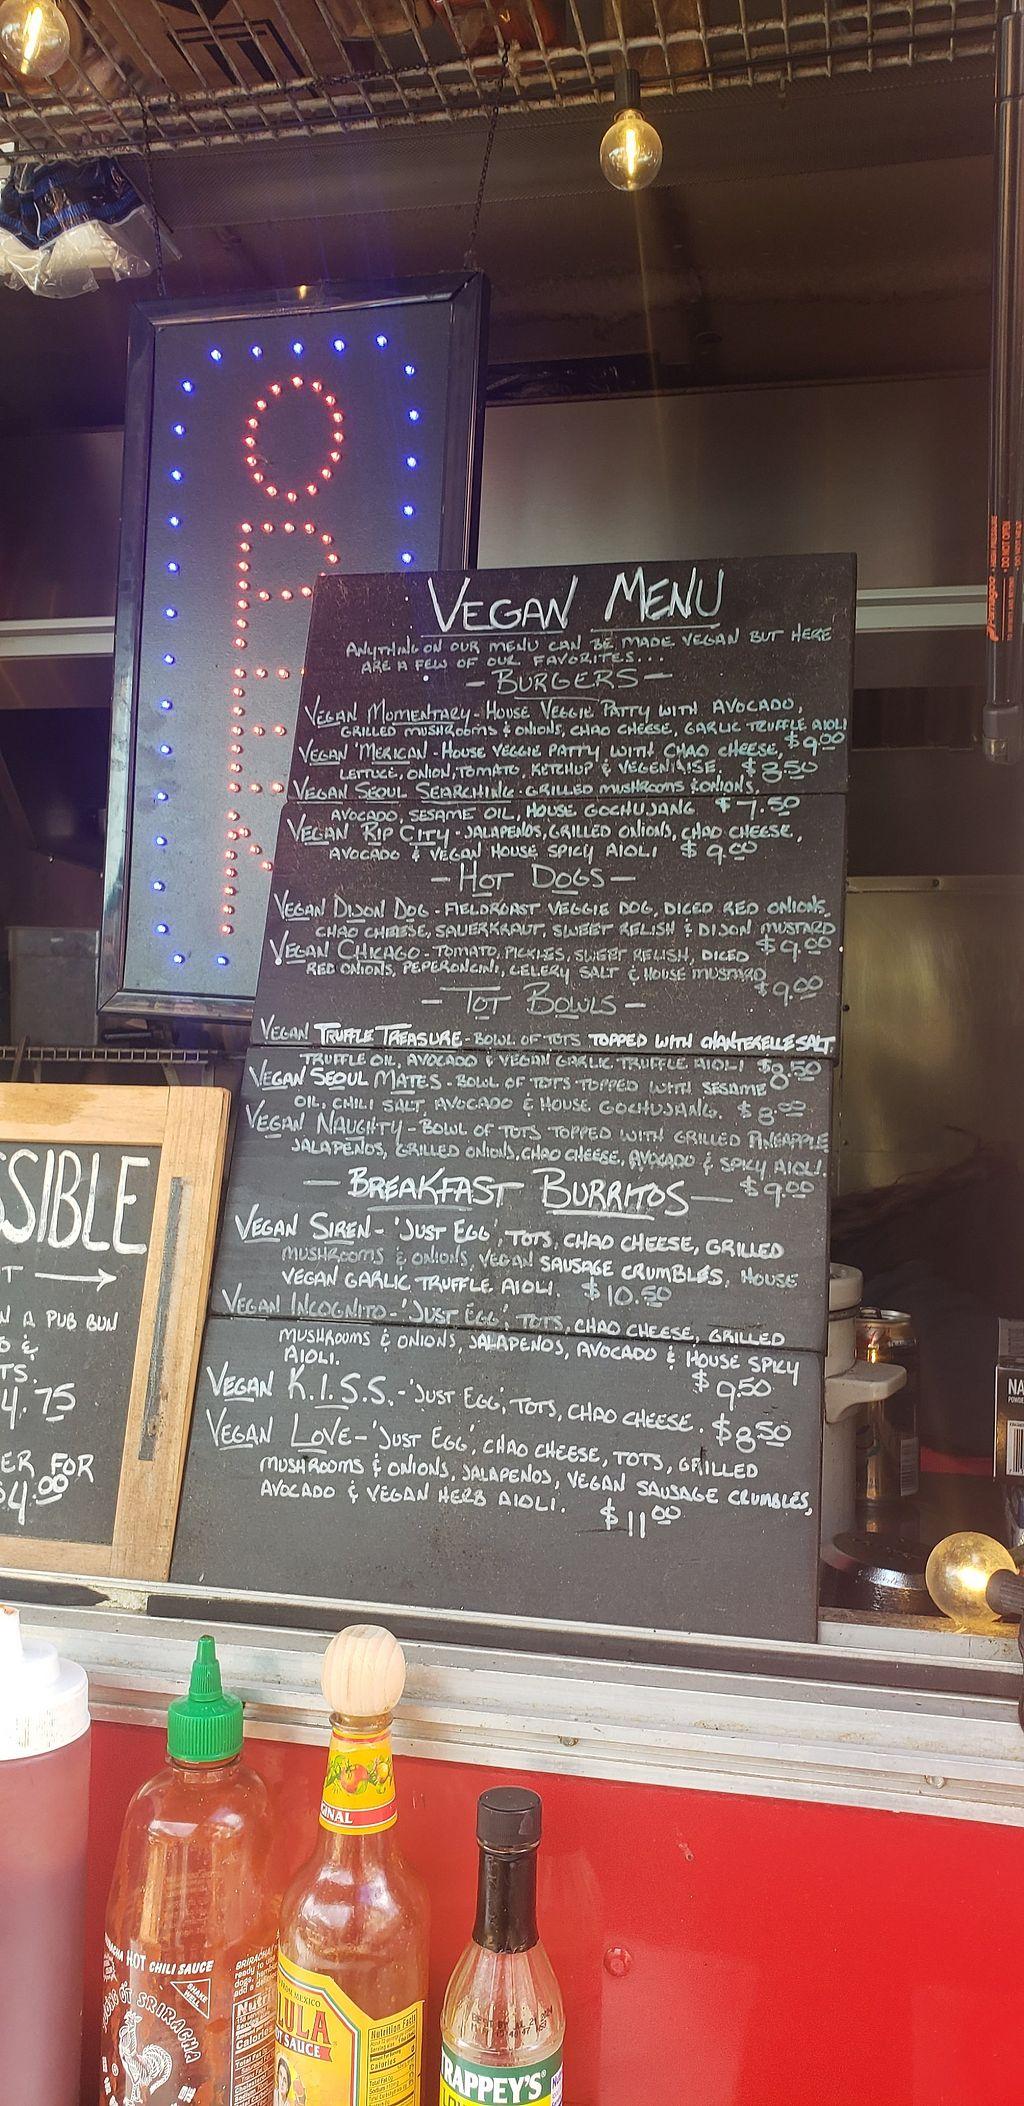 OPEN
VEGAN MENU
ANYTHING ON OUR MENU CAN BE MADE VEGAN BUT HERE
ARE A FEW OF OUR FAVORITES...
- BURGERS -
VEGAN MOMENTARY - HOUSE VEGGIE PATTY WITH AVOCADO,
GRILLED MUSHROOMS & ONIONS, CHAO CHEESE, GARLIC TRUFFLE AIOLI
$9.00
VEGAN 'MERICAN - HOUSE VEGGIE PATTY WITH CHAO CHEESE,
LETTUCE, ONION, TOMATO, KETCHUP & VEGENAISE. $8.50
VEGAN SEOUL SEARCHING - GRILLED MUSHROOMS & ONIONS,
AVOCADO, SESAME OIL, HOUSE GOCHUJANG $7.50
VEGAN RIP CITY - JALAPENOS, GRILLED ONIONS, CHAO CHEESE,
AVOCADO & VEGAN HOUSE SPICY AIOLI $9.00
- HOT DOGS -
VEGAN DIJON DOG - FIELDROAST VEGGIE DOG, DICED RED ONIONS,
CHAO CHEESE, SAUERKRAUT, SWEET RELISH & DIJON MUSTARD
$9.00
VEGAN CHICAGO - TOMATO, PICKLES, SWEET RELISH, DICED
RED ONIONS, PEPERONCINI, CELERY SALT & HOUSE MUSTARD
$9.00
- TOT BOWLS -
VEGAN TRUFFLE TREASURE - BOWL OF TOTS TOPPED WITH CHANTERELLE SALT
TRUFFLE OIL, AVOCADO & VEGAN GARLIC TRUFFLE AIOLI $8.50
VEGAN SEOUL MATES - BOWL OF TOTS TOPPED WITH SESAME
OIL, CHILI SALT, AVOCADO & HOUSE GOCHUJANG. $8.00
VEGAN NAUGHTY - BOWL OF TOTS TOPPED WITH GRILLED PINEAPPLE
JALAPENOS, GRILLED ONIONS, CHAO CHEESE, AVOCADO & SPICY AIOLI.
$9.00
- BREAKFAST BURRITOS -
VEGAN SIREN - 'JUST EGG', TOTS, CHAO CHEESE, GRILLED
MUSHROOMS & ONIONS, VEGAN SAUSAGE CRUMBLES, HOUSE
VEGAN GARLIC TRUFFLE AIOLI. $10.50
VEGAN INCOGNITO - 'JUST EGG', TOTS, CHAO CHEESE, GRILLED
MUSHROOMS & ONIONS, JALAPENOS, AVOCADO & HOUSE SPICY
AIOLI. $9.50
VEGAN K.I.S.S. - 'JUST EGG', TOTS, CHAO CHEESE. $8.50
VEGAN LOVE - 'JUST EGG', CHAO CHEESE, TOTS, GRILLED
MUSHROOMS & ONIONS, JALAPENOS, VEGAN SAUSAGE CRUMBLES,
AVOCADO & VEGAN HERB AIOLI. $11.00
SSIBLE
A PUB BUN
&
TS.
4.75
ER FOR
$4.00
DO NOT OPEN
NA
GINAL
HOT CHILI SAUCE
SRIRACHA
SHAKE WELL
FROM MEXICO
LULA
T SAUCE
Nutrition Facts
Calories
RAPPEY'S